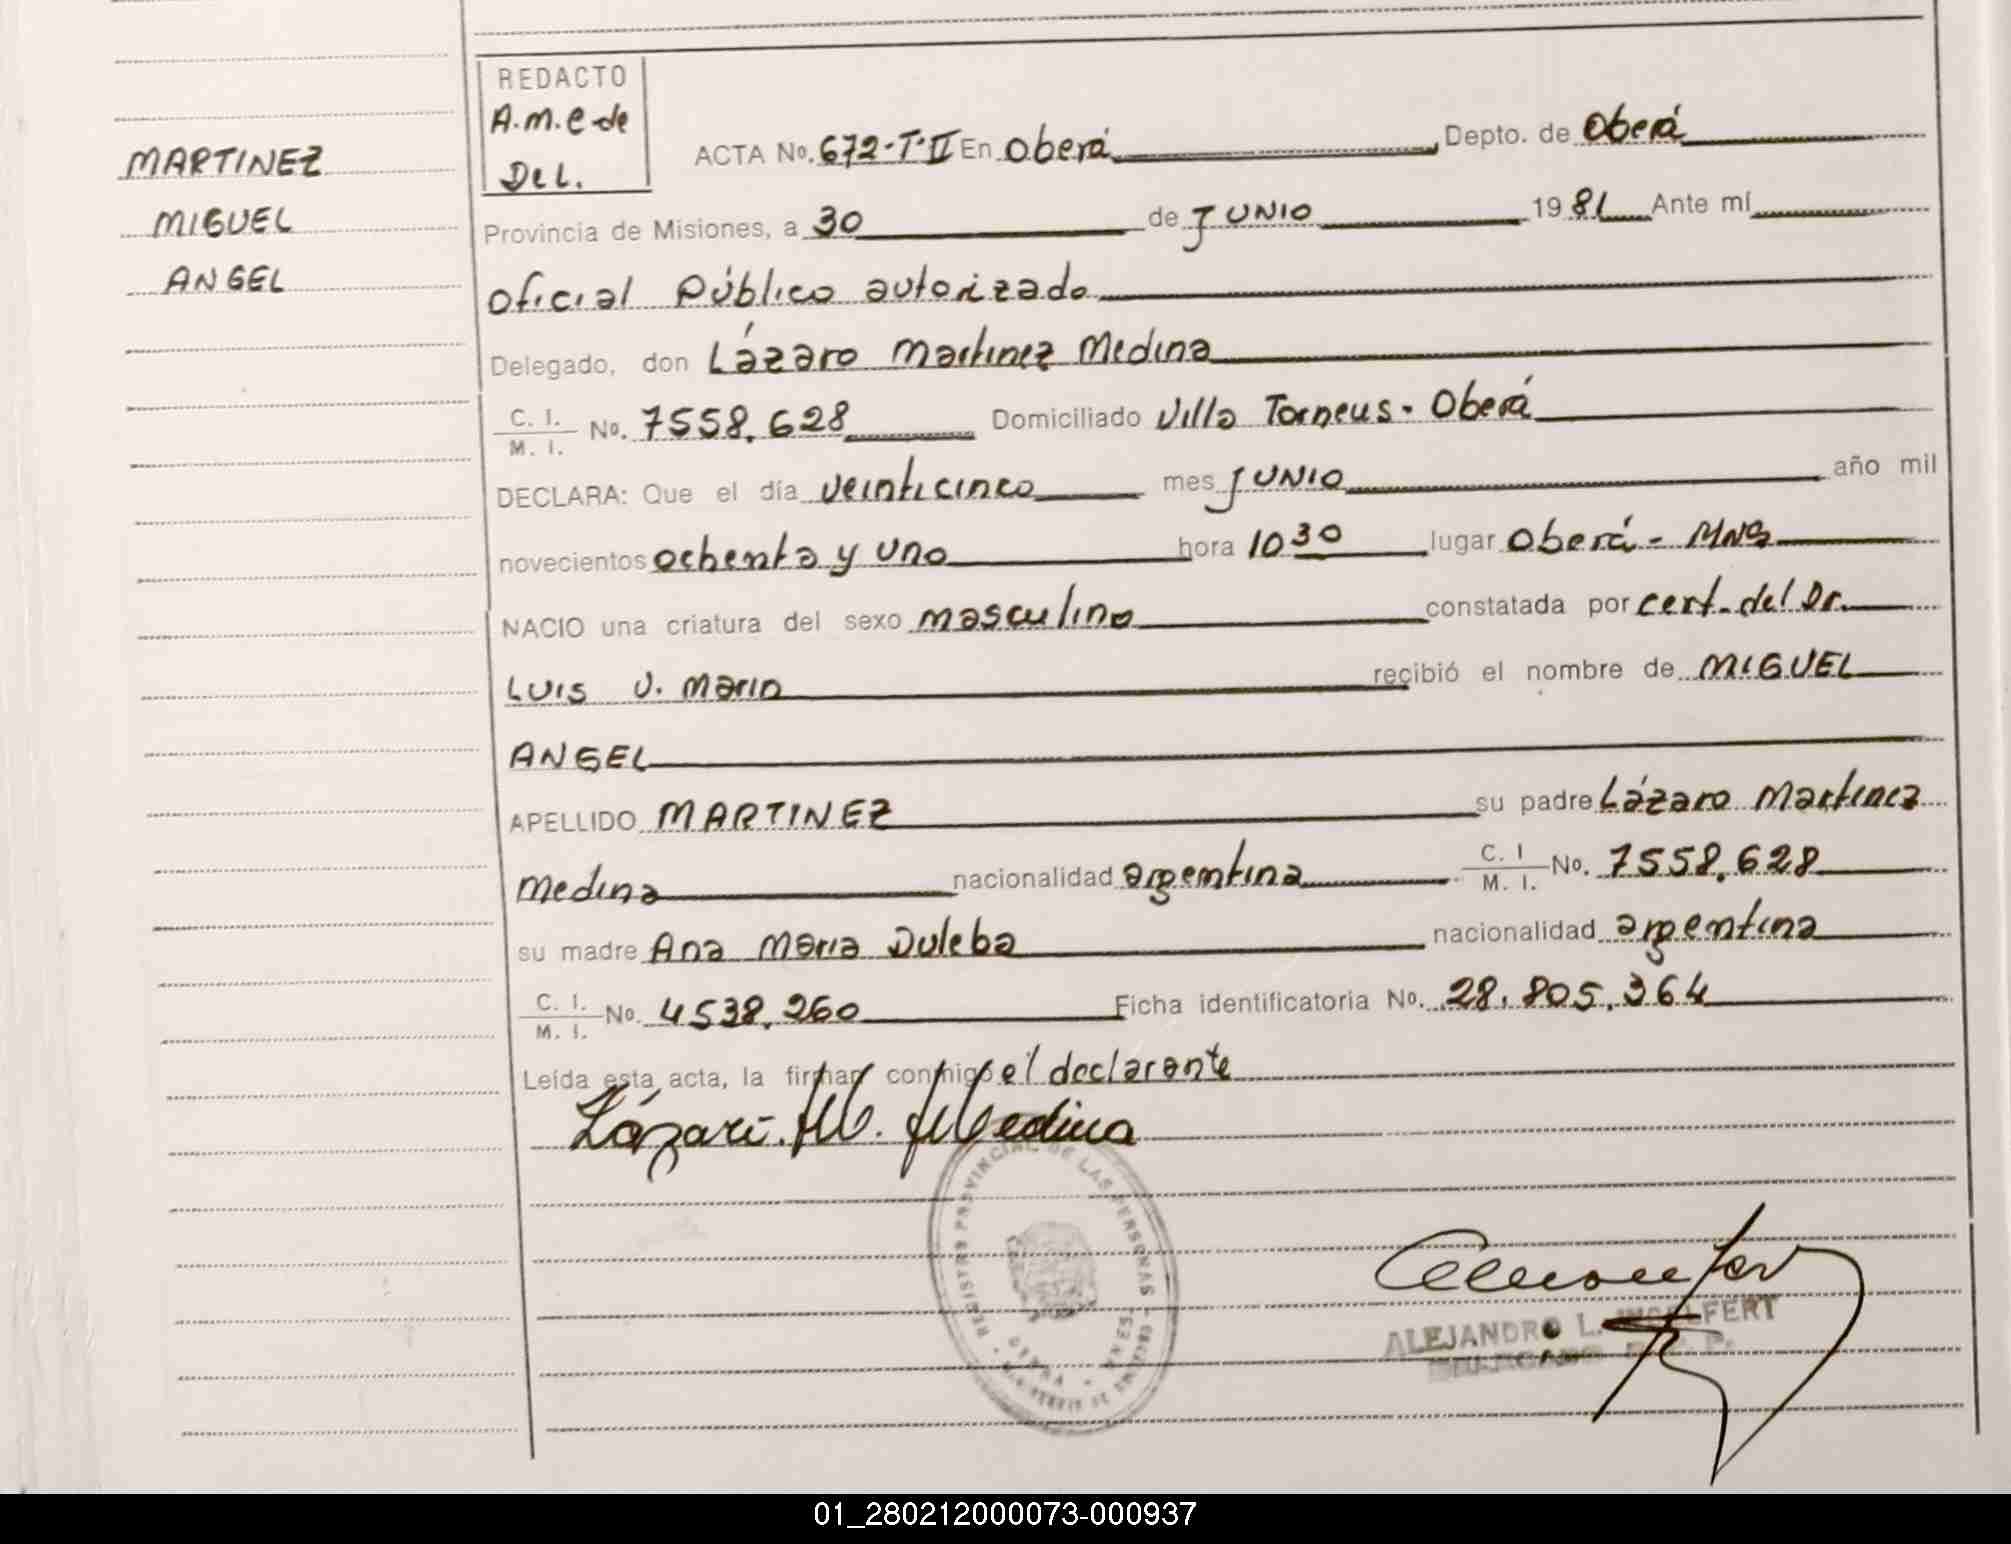 MARTINEZ
MIGUEL
ANGEL
REDACTO
A.M.e de
DEL.
ACTA No. 672-T-II En Oberá Depto. de Oberá
Provincia de Misiones, a 30 de JUNIO 1981 Ante mí
Oficial Público autorizado
Delegado, don Lázaro Martinez Medina
C. I. / M. I. No. 7558.628 Domiciliado Villa Torneus - Oberá
DECLARA: Que el día veinticinco mes JUNIO año mil
novecientos ochenta y uno hora 10 30 lugar Oberá - MNS
NACIO una criatura del sexo masculino constatada por cert. del Dr.
LUIS V. Marin recibió el nombre de MIGUEL
ANGEL
APELLIDO MARTINEZ su padre Lázaro Martinez
Medina nacionalidad argentina C. I / M. I. No. 7558.628
su madre Ana Maria Duleba nacionalidad argentina
C. I. / M. I. No. 4538.260 Ficha identificatoria No. 28.805.364
Leída esta acta, la firman conmigo el declarante
Lázaro M. Medina
REGISTRO PROVINCIAL DE LAS PERSONAS
OBERA
ALEJANDRO L. INGELFERT
DELEGADO R. P.
01_280212000073-000937